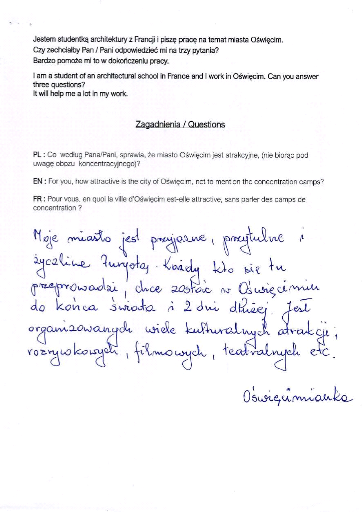 Jestem studentką architektury z Francji i piszę pracę na temat miasta Oświęcim.
Czy zechciałby Pan / Pani odpowiedzieć mi na trzy pytania?
Bardzo pomoże mi to w dokończeniu pracy.
I am a student of an architectural school in France and I work in Oświęcim. Can you answer
three questions?
It will help me a lot in my work.
Zagadnienia / Questions
PL : Co według Pana/Pani, sprawia, że miasto Oświęcim jest atrakcyjne, (nie biorąc pod
uwagę obozu koncentracyjnego)?
EN : For you, how attractive is the city of Oświęcim, not to mention the concentration camps?
FR : Pour vous, en quoi la ville d'Oświęcim est-elle attractive, sans parler des camps de
concentration ?
Moje miasto jest przyjazne, przytulne i
życzliwe turystą. Każdy kto się tu
przeprowadzi, chce zostać w Oświęcimiu
do końca świata i 2 dni dłużej. Jest
organizowanych wiele kulturalnych atrakcji,
rozrywkowych, filmowych, teatralnych etc.
Oświęcimianka